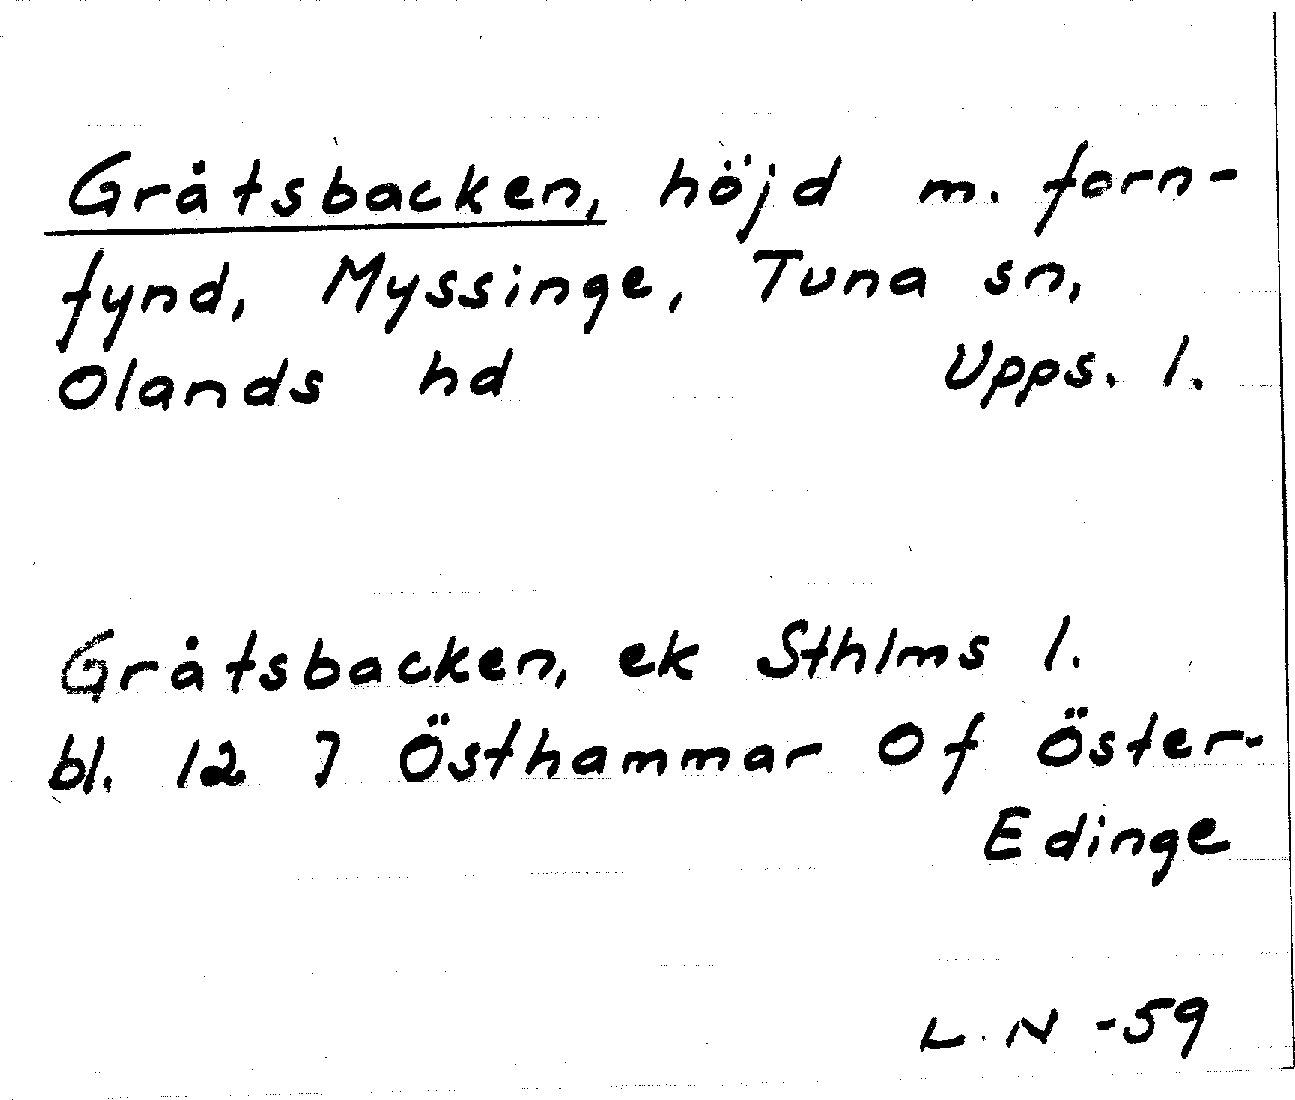 Gråtsbacken, höjd m. forn-
fynd, Myssinge, Tuna sn,
Olands hd Upps. l.
Gråtsbacken, ek Sthlms l.
bl. 12 I Östhammar Of Öster-
Edinge
L. N -59